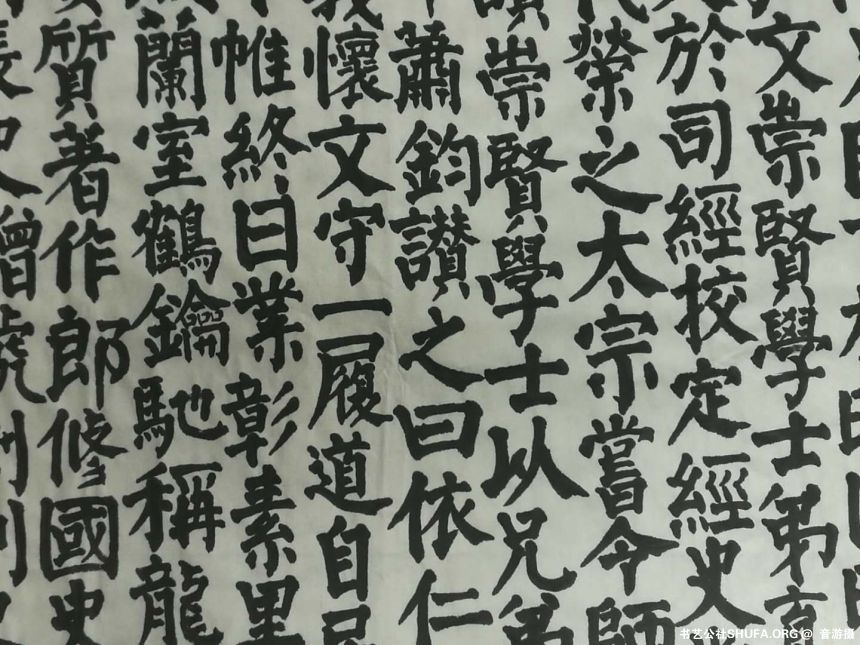 文崇賢學士弟
於司經校定經史
榮之太宗嘗令師
崇賢學士以兄弟
蕭鈞讃之曰依仁
懷文守一履道自
帷終日業彰素里
蘭室鶴鑰馳稱龍
質著作郎修國史
書艺公社SHUFA.ORG @ 音游摄